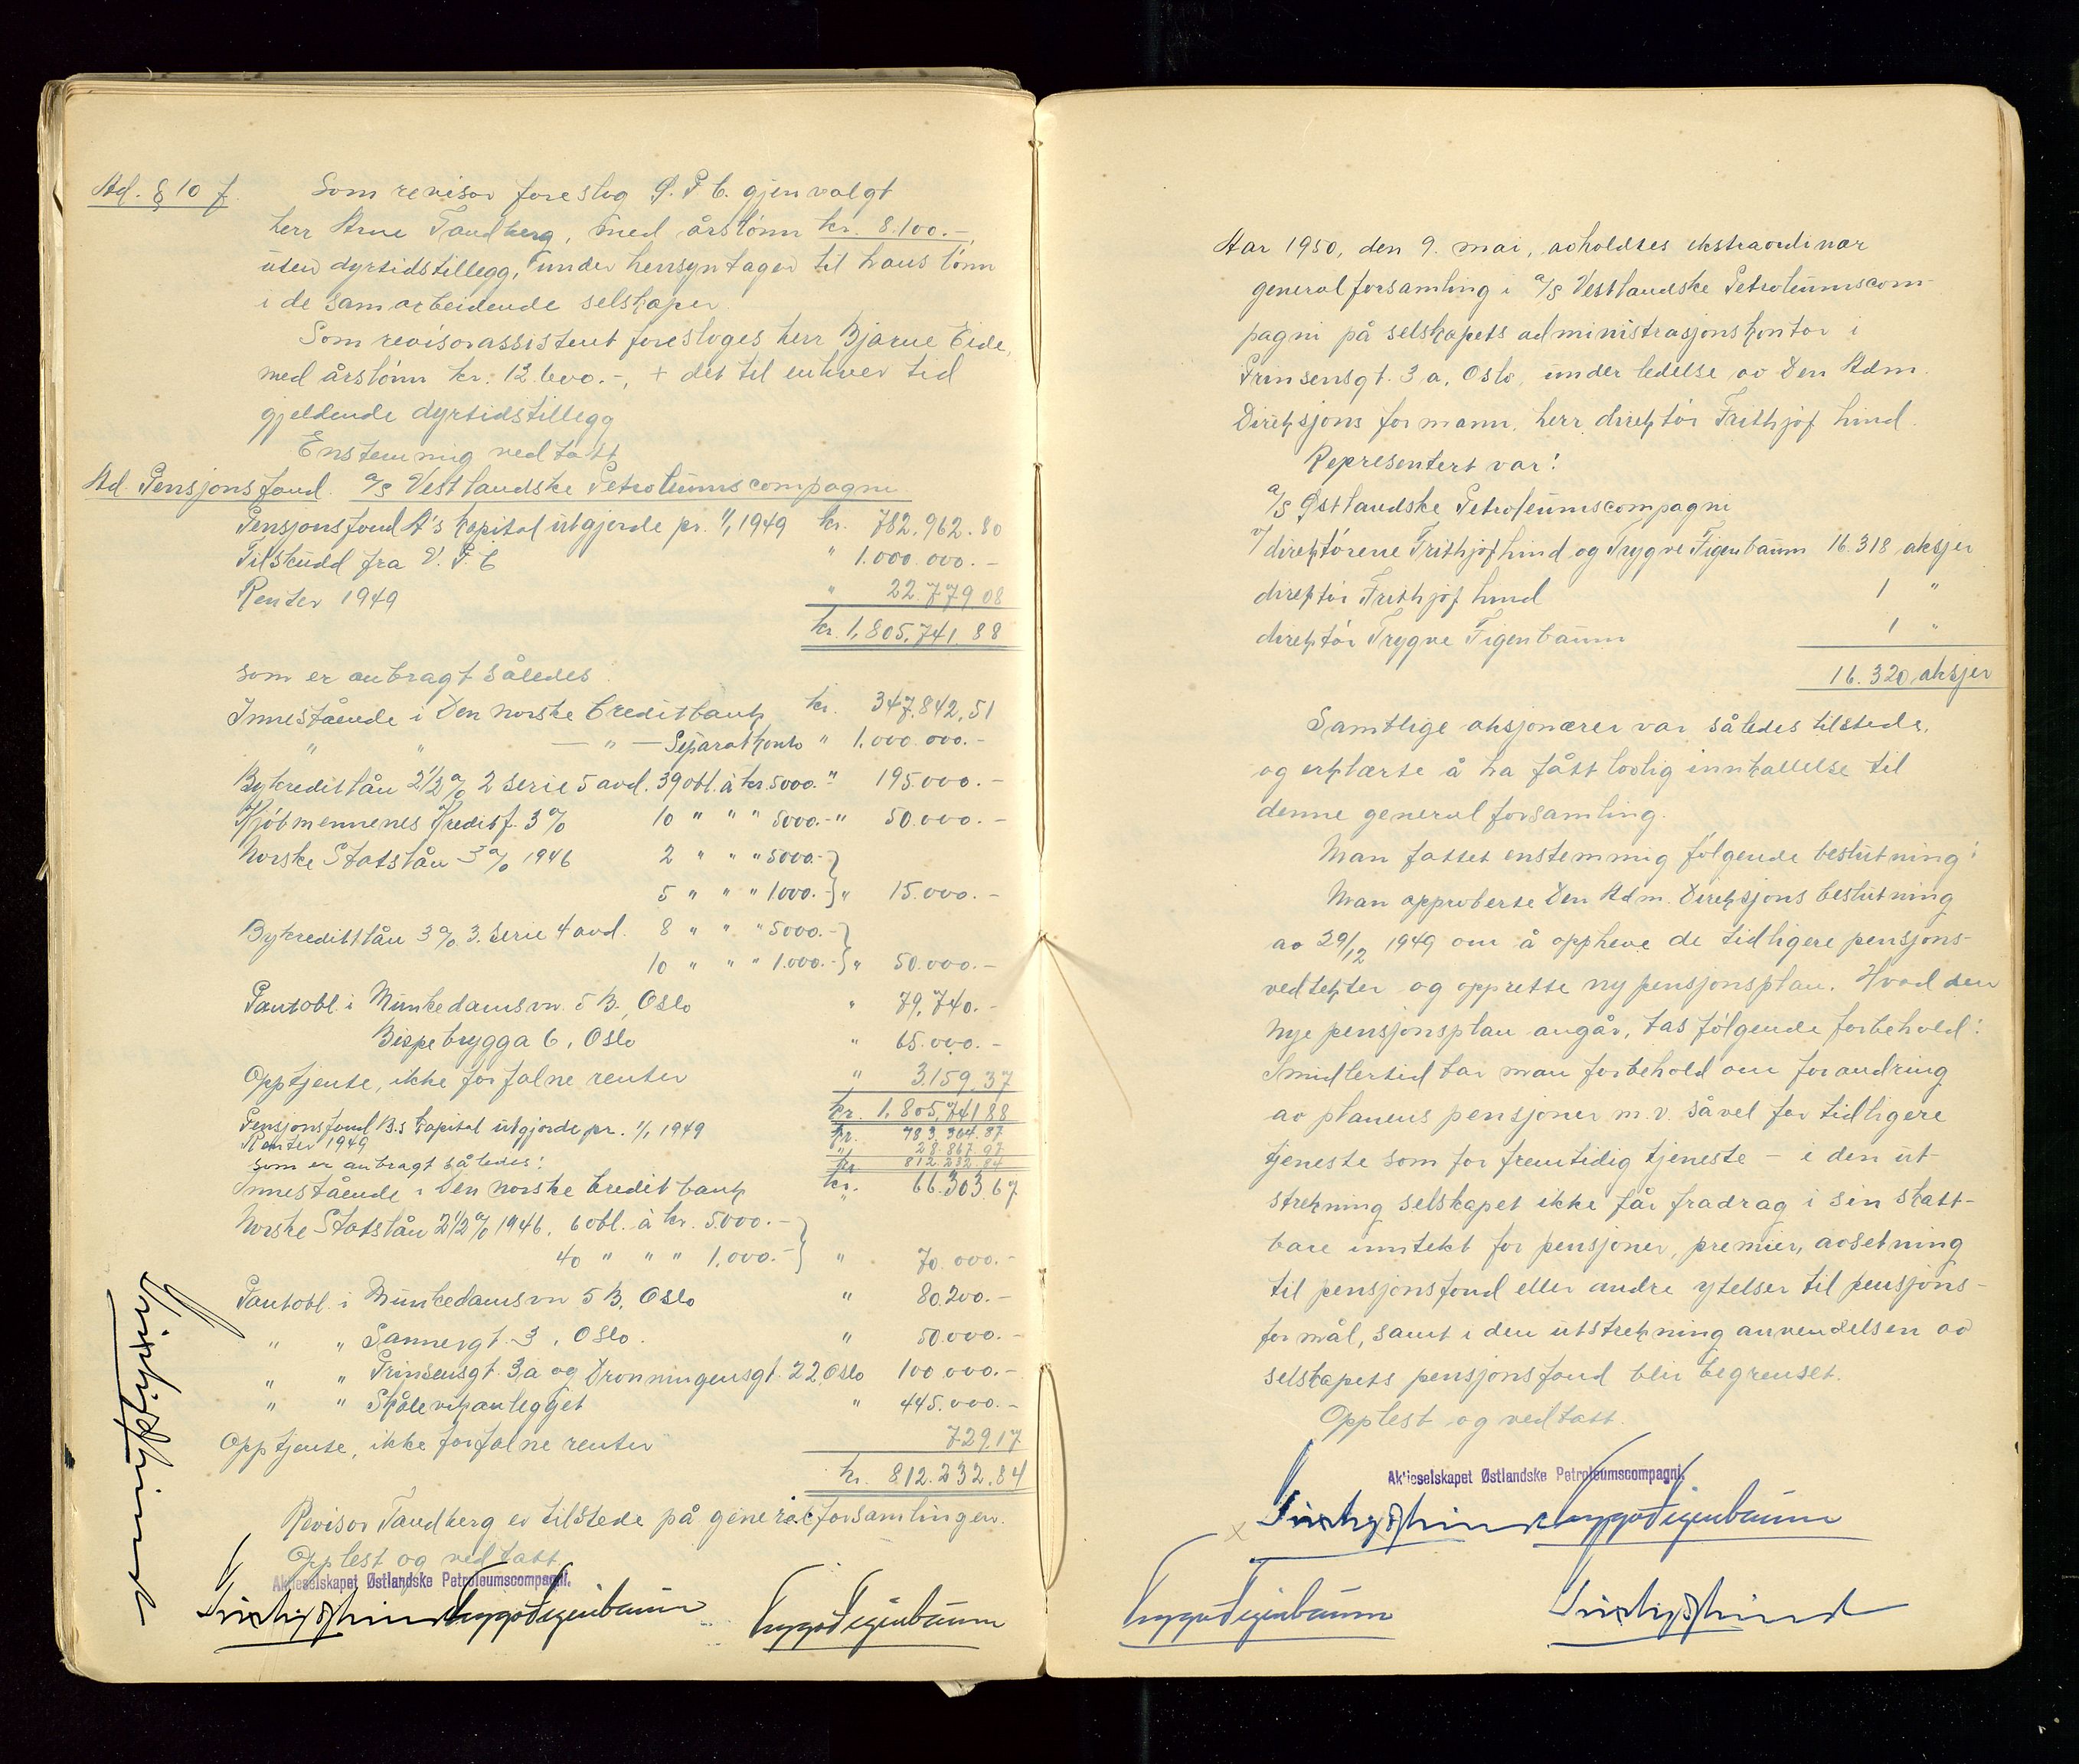 Ad. § 10 f. Som revisor foreslog Ø. P. C. gjenvalgt
herr Arne Tandberg, med årslønn kr. 8.100.-,
uten dyrtidstillegg, under hensyntagen til hans lønn
i de samarbeidende selskaper
Som revisorassistent foresloges herr Bjarne Eide,
med årslønn kr. 12.600.-, + det til enhver tid
gjeldende dyrtidstillegg
Enstemmig vedtatt
Ad. Pensjonsfond. A/S Vestlandske Petroleumscompagni
Pensjonsfond A's kapital utgjorde pr. 1/1 1949 kr. 782.962.80
Tilskudd fra V. P. C " 1.000.000.-
Renter 1949 " 22.779 08
kr. 1,805,741.88
som er anbragt således:
Innestående i Den norske Creditbank kr. 347.842,51
" " — " — Separatkonto " 1,000.000.-
Bykredittlån 2 1/2 % 2 serie 5 avd. 39 obl. à kr. 5000." 195.000.-
Kjøbmennenes Kreditf. 3 % 10 " " " 5000.- " 50.000.-
Norske Statslån 3 % 1946 2 " " " 5000.- }
5 " " " 1000.- } " 15.000.-
Bykredittlån 3 % 3. serie 4 avd. 8 " " " 5000.- }
10 " " " 1.000.- } " 50.000.-
Pantobl. i Munkedamsvn. 5 B., Oslo " 79,740.-
Bispebrygga 6, Oslo " 65.000.-
Opptjente, ikke forfalne renter " 3.159.37
kr. 1,805,741 88
Pensjonsfond B.s kapital utgjorde pr. 1/1 1949 kr. 783.364.87
Renter 1949 " 28.867.97
som er anbragt således: kr 812.232.84
Innestående i Den norske Creditbank kr. 66.303.67
Norske Statslån 2 1/2 % 1946. 6 obl. à kr. 5.000.- }
40 " " " 1,000.- } " 70.000.-
Pantobl. i Munkedamsvn 5 B, Oslo " 80.200.-
" " Sannergt. 3, Oslo. " 50.000.-
" " Prinsensgt. 3a og Dronningensgt. 22, Oslo 100 000.-
" " Skålevikanlegget " 445.000.-
Opptjente, ikke forfalne renter 729.17
kr. 812.232.84
Revisor Tandberg er tilstede på generalforsamlingen.
Opplest og vedtatt.
Aktieselskapet Østlandske Petroleumscompagni.
Frithjof Lind Trygve Figenbaum Trygve Figenbaum
Frithjof Lind
Aar 1950, den 9. mai, avholdtes ekstraordinær
generalforsamling i A/S Vestlandske Petroleumscom-
pagni på selskapets administrasjonskontor i
Prinsensgt. 3 a, Oslo, under ledelse av Den Adm.
Direksjons formann, herr direktør Frithjof Lind.
Representert var:
A/S Østlandske Petroleumscompagni
v/ direktørene Frithjof Lind og Trygve Figenbaum 16.318 aksjer
direktør Frithjof Lind 1 "
direktør Trygve Figenbaum 1 "
16.320 aksjer
Samtlige aksjonærer var således tilstede,
og erklærte å ha fått lovlig innkallelse til
denne generalforsamling.
Man fattet enstemmig følgende beslutning:
Man approberte Den Adm. Direksjons beslutning
av 29/12 1949 om å oppheve de tidligere pensjons-
vedtekter og opprette ny pensjonsplan. Hvad den
nye pensjonsplan angår, tas følgende forbehold:
Imidlertid tar man forbehold om forandring
av planens pensjoner m.v. såvel for tidligere
tjeneste som for fremtidig tjeneste - i den ut-
strekning selskapet ikke får fradrag i sin skatt-
bare inntekt for pensjoner, premier, avsetning
til pensjonsfond eller andre ytelser til pensjons-
formål, samt i den utstrekning anvendelsen av
selskapets pensjonsfond blir begrenset.
Opplest og vedtatt.
Aktieselskapet Østlandske Petroleumscompagni.
x Frithjof Lind Trygve Figenbaum
Trygve Figenbaum Frithjof Lind